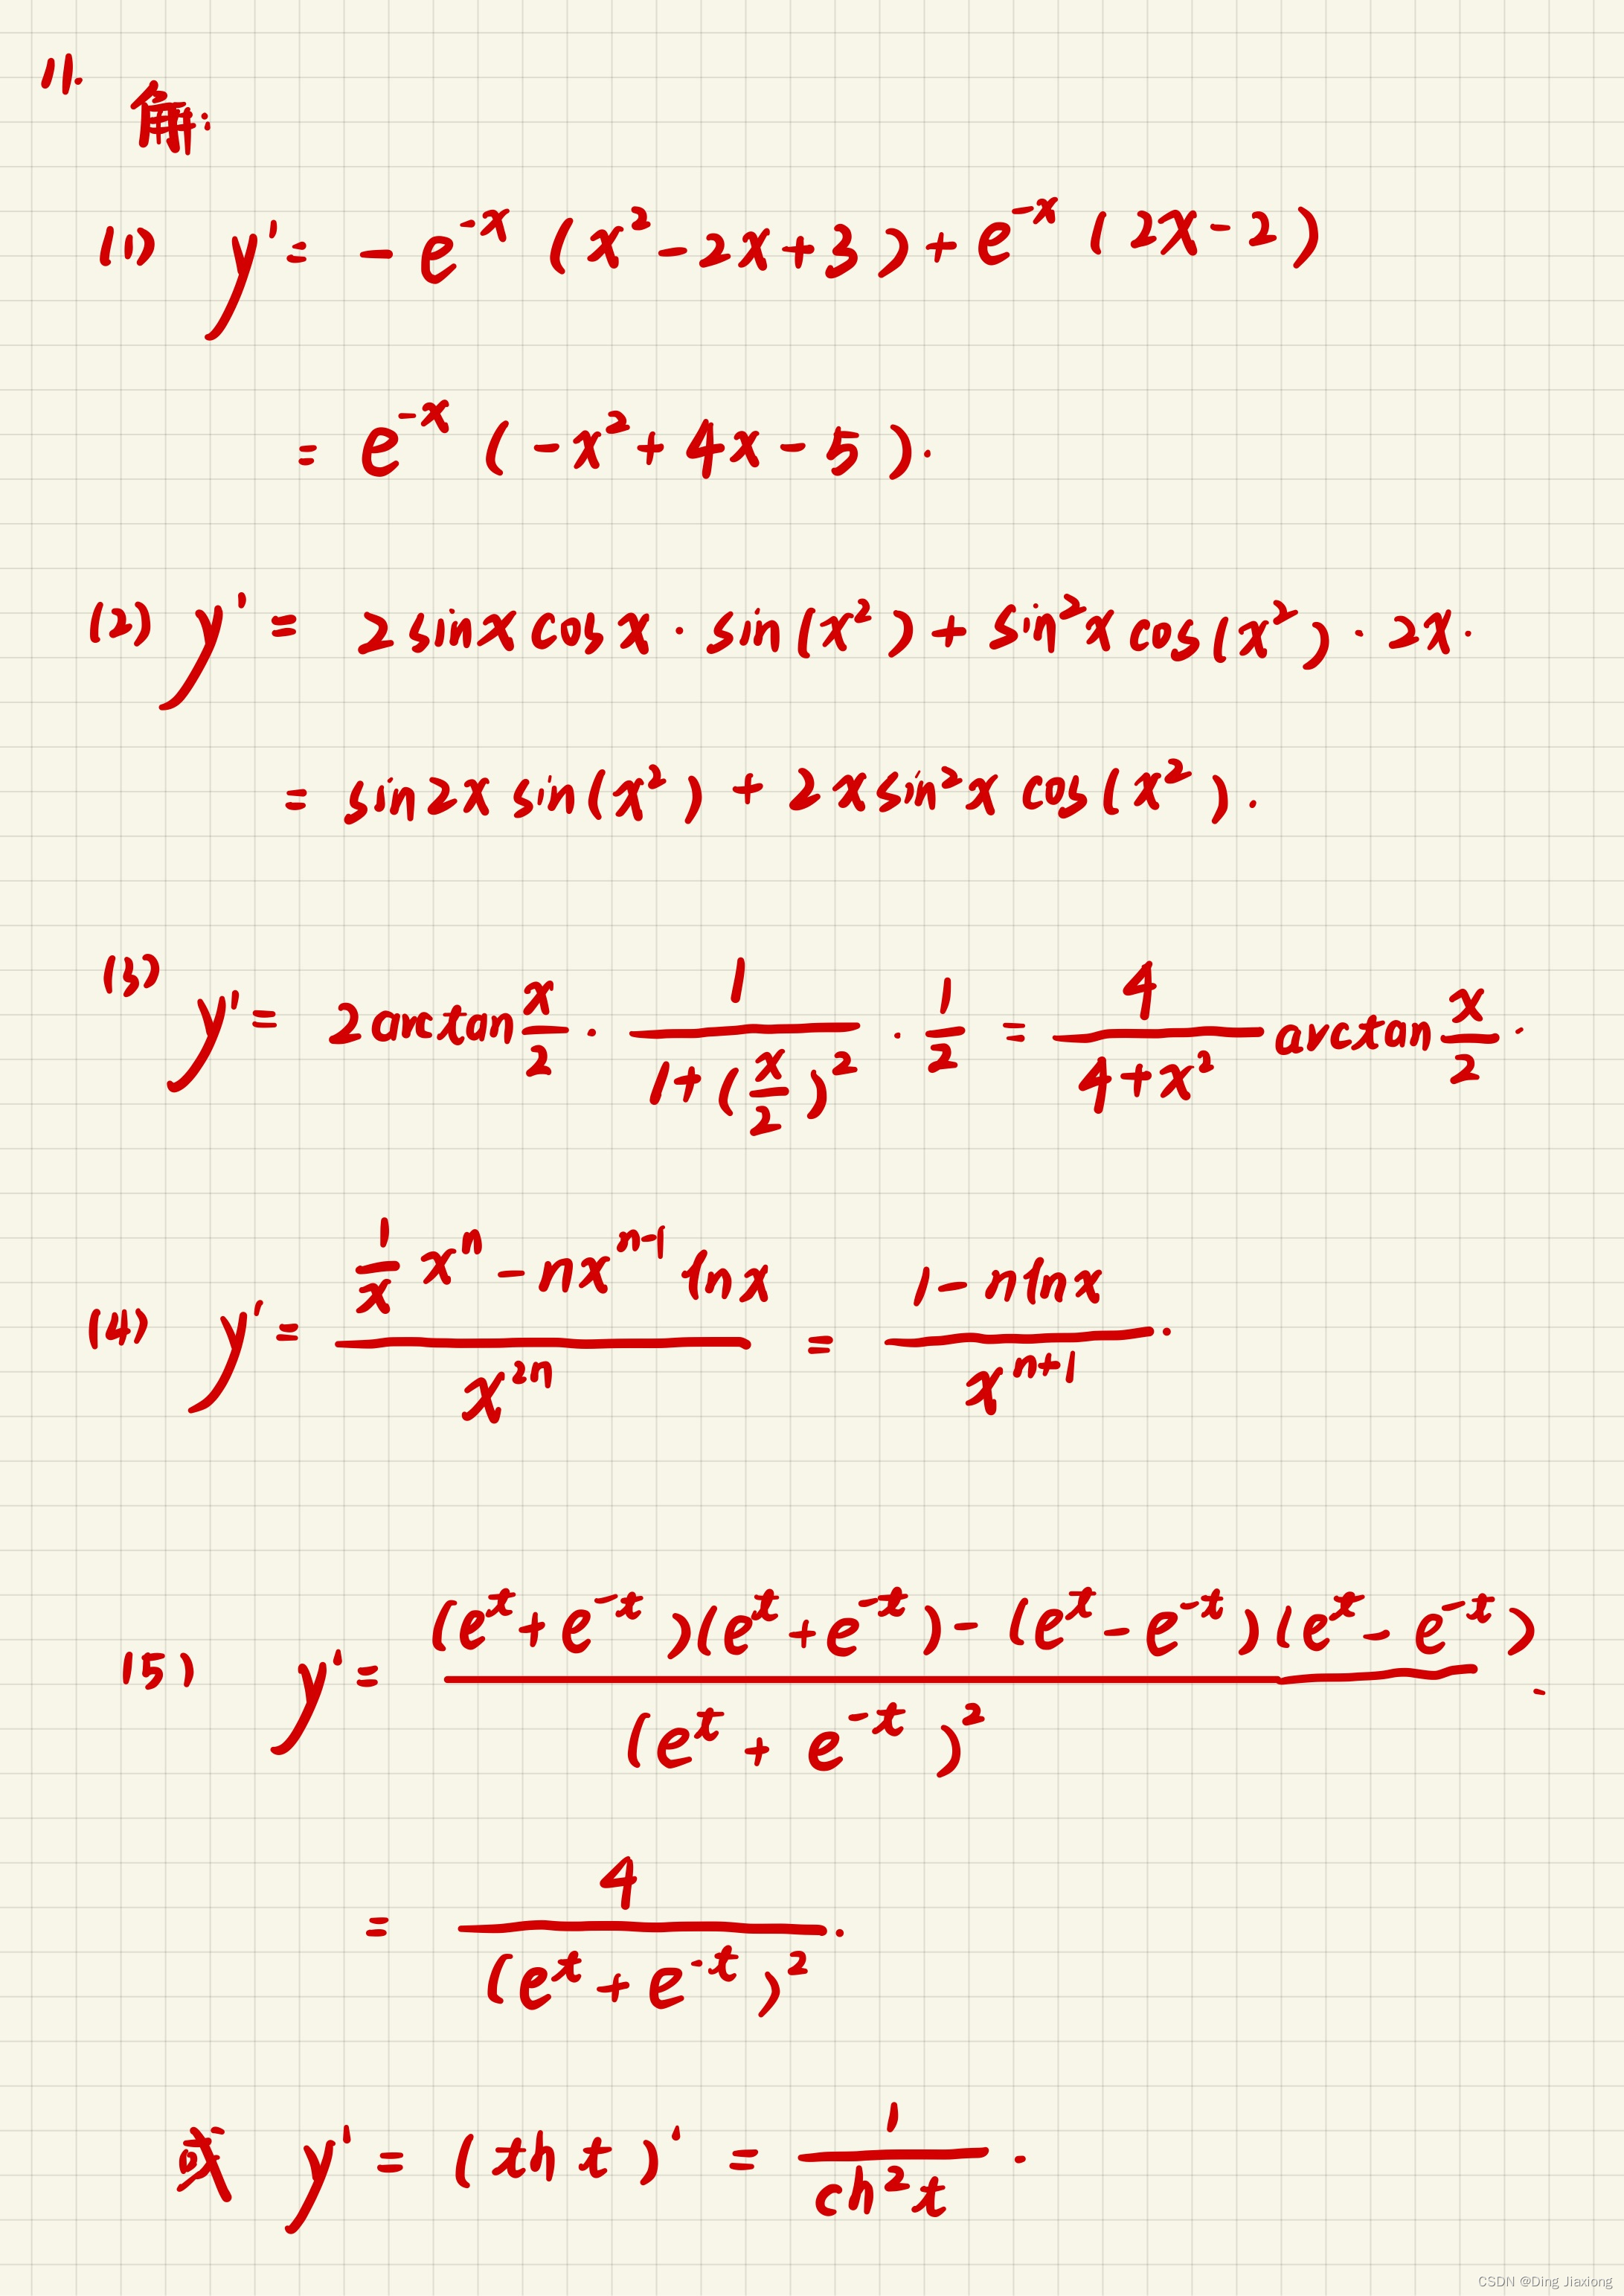 11.
解:
(1) y' = -e^{-x} (x^2 - 2x + 3) + e^{-x} (2x - 2)
= e^{-x} (-x^2 + 4x - 5).
(2) y' = 2 sin x cos x · sin(x^2) + sin^2 x cos(x^2) · 2x.
= sin2x sin(x^2) + 2x sin^2 x cos(x^2).
(3) y' = 2 arctan \frac{x}{2} · \frac{1}{1+(\frac{x}{2})^2} · \frac{1}{2} = \frac{4}{4+x^2} arctan \frac{x}{2}.
(4) y' = \frac{\frac{1}{x} x^n - nx^{n-1} ln x}{x^{2n}} = \frac{1 - n ln x}{x^{n+1}}.
(5) y' = \frac{(e^t + e^{-t})(e^t + e^{-t}) - (e^t - e^{-t})(e^t - e^{-t})}{(e^t + e^{-t})^2}.
= \frac{4}{(e^t + e^{-t})^2}.
或 y' = (th t)' = \frac{1}{ch^2 t}.
CSDN @Ding Jiaxiong